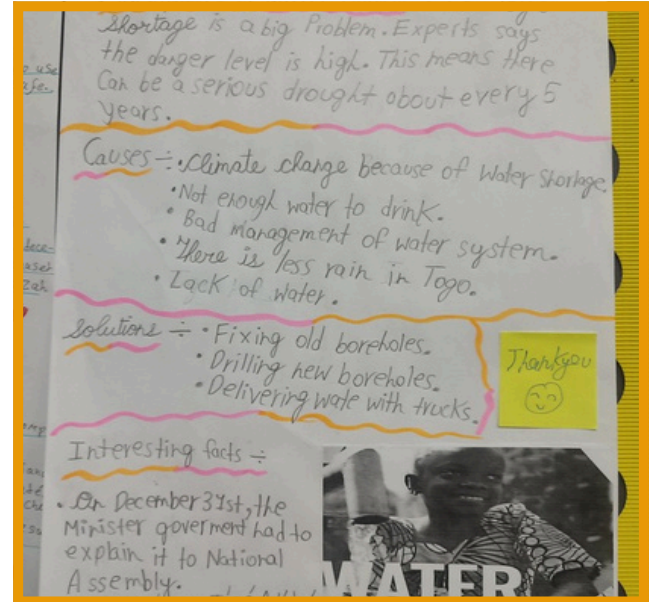 Shortage is a big Problem. Experts says
the danger level is high. This means there
Can be a serious drought about every 5
years.
Causes ÷ • Climate change because of water shortage.
• Not enough water to drink.
• Bad management of water system.
• There is less rain in Togo.
• Lack of water.
Solutions ÷ • Fixing old boreholes.
• Drilling new boreholes.
• Delivering wate with trucks.
Thankyou
Interesting facts ÷
• On December 31st, the
Minister goverment had to
explain it to National
Assembly.
WATER